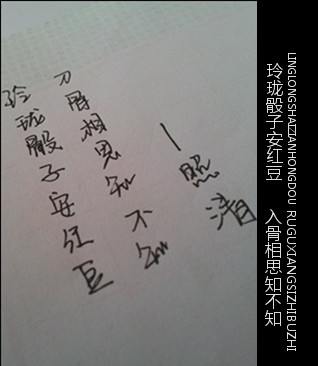 玲珑骰子安红豆
入骨相思知不知
—照清
玲珑骰子安红豆 入骨相思知不知
LINGLONGSHAIZIANHONGDOU RUGUXIANGSIZHIBUZHI